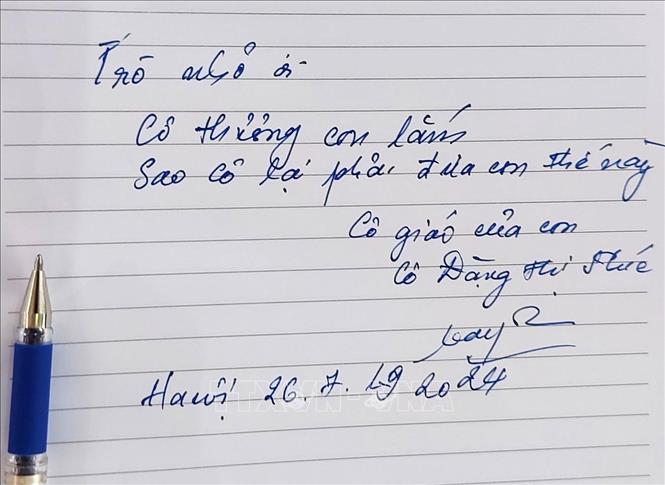 Trò nhỏ ơi
Cô thương con lắm
Sao cô lại phải đưa con thế này
Cô giáo của con
Cô Đặng Thị Phúc
Hanội 26.7. 2024
TTXVN-VNA